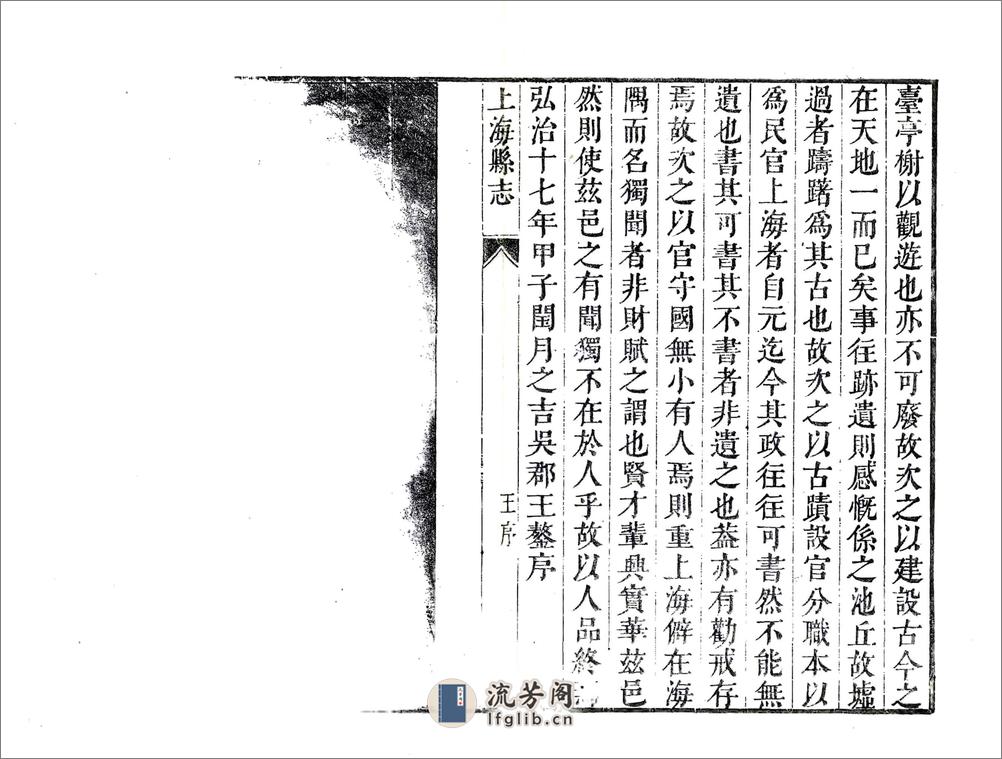 臺亭榭以觀遊也亦不可廢故次之以建設古今之
在天地一而已矣事往跡遺則感慨係之池丘故墟
過者躊躇爲其古也故次之以古蹟設官分職本以
爲民官上海者自元迄今其政往往可書然不能無
遺也書其可書其不書者非遺之也葢亦有勸戒存
焉故次之以官守國無小有人焉則重上海僻在海
隅而名獨聞者非財賦之謂也賢才輩興實華兹邑
然則使兹邑之有聞獨不在於人乎故以人品終
弘治十七年甲子閏月之吉吳郡王鏊序
上海縣志
王序
流芳阁
lfglib.cn